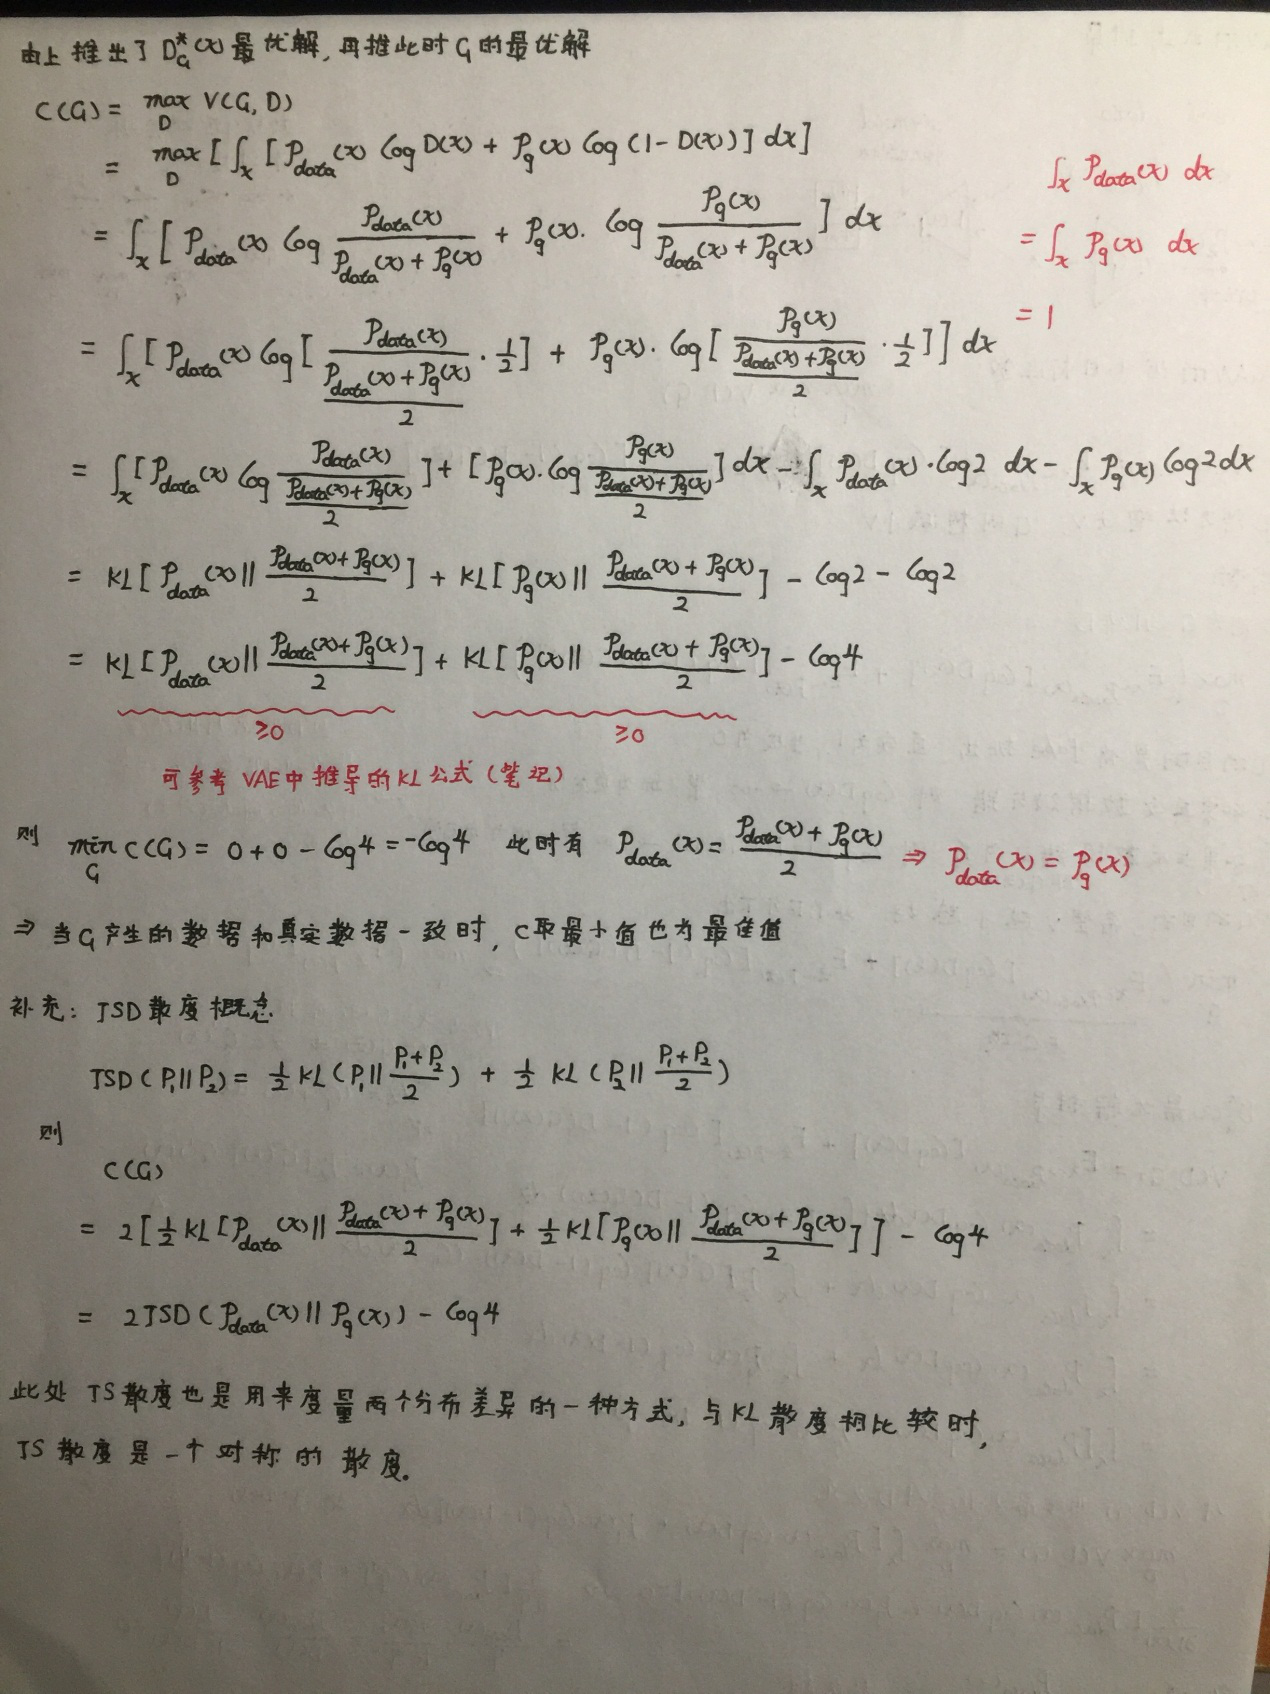 由上推出了 D_G^*(x) 最优解, 再推此时 G 的最优解
C(G) = max_D V(G, D)
= max_D [ ∫_x [ P_data(x) log D(x) + P_g(x) log (1 - D(x)) ] dx ]
= ∫_x [ P_data(x) log \frac{P_data(x)}{P_data(x) + P_g(x)} + P_g(x) · log \frac{P_g(x)}{P_data(x) + P_g(x)} ] dx
∫_x P_data(x) dx
= ∫_x P_g(x) dx
= 1
= ∫_x [ P_data(x) log [ \frac{P_data(x)}{\frac{P_data(x) + P_g(x)}{2}} · \frac{1}{2} ] + P_g(x) · log [ \frac{P_g(x)}{\frac{P_data(x) + P_g(x)}{2}} · \frac{1}{2} ] ] dx
= ∫_x [ P_data(x) log \frac{P_data(x)}{\frac{P_data(x) + P_g(x)}{2}} ] + [ P_g(x) · log \frac{P_g(x)}{\frac{P_data(x) + P_g(x)}{2}} ] dx - ∫_x P_data(x) · log2 dx - ∫_x P_g(x) log2 dx
= KL [ P_data(x) || \frac{P_data(x) + P_g(x)}{2} ] + KL [ P_g(x) || \frac{P_data(x) + P_g(x)}{2} ] - log2 - log2
= KL [ P_data(x) || \frac{P_data(x) + P_g(x)}{2} ] + KL [ P_g(x) || \frac{P_data(x) + P_g(x)}{2} ] - log4
≥0 ≥0
可参考 VAE中推导的KL公式 (笔记)
则 min_G C(G) = 0 + 0 - log4 = -log4 此时有 P_data(x) = \frac{P_data(x) + P_g(x)}{2} ⇒ P_data(x) = P_g(x)
⇒ 当G产生的数据和真实数据一致时, C取最小值也为最佳值
补充: JSD散度概念
JSD ( P_1 || P_2 ) = \frac{1}{2} KL ( P_1 || \frac{P_1 + P_2}{2} ) + \frac{1}{2} KL ( P_2 || \frac{P_1 + P_2}{2} )
则
C(G)
= 2 [ \frac{1}{2} KL [ P_data(x) || \frac{P_data(x) + P_g(x)}{2} ] + \frac{1}{2} KL [ P_g(x) || \frac{P_data(x) + P_g(x)}{2} ] ] - log4
= 2JSD ( P_data(x) || P_g(x) ) - log4
此处 JS散度也是用来度量两个分布差异的一种方式, 与KL散度相比较时,
JS散度是一个对称的散度.